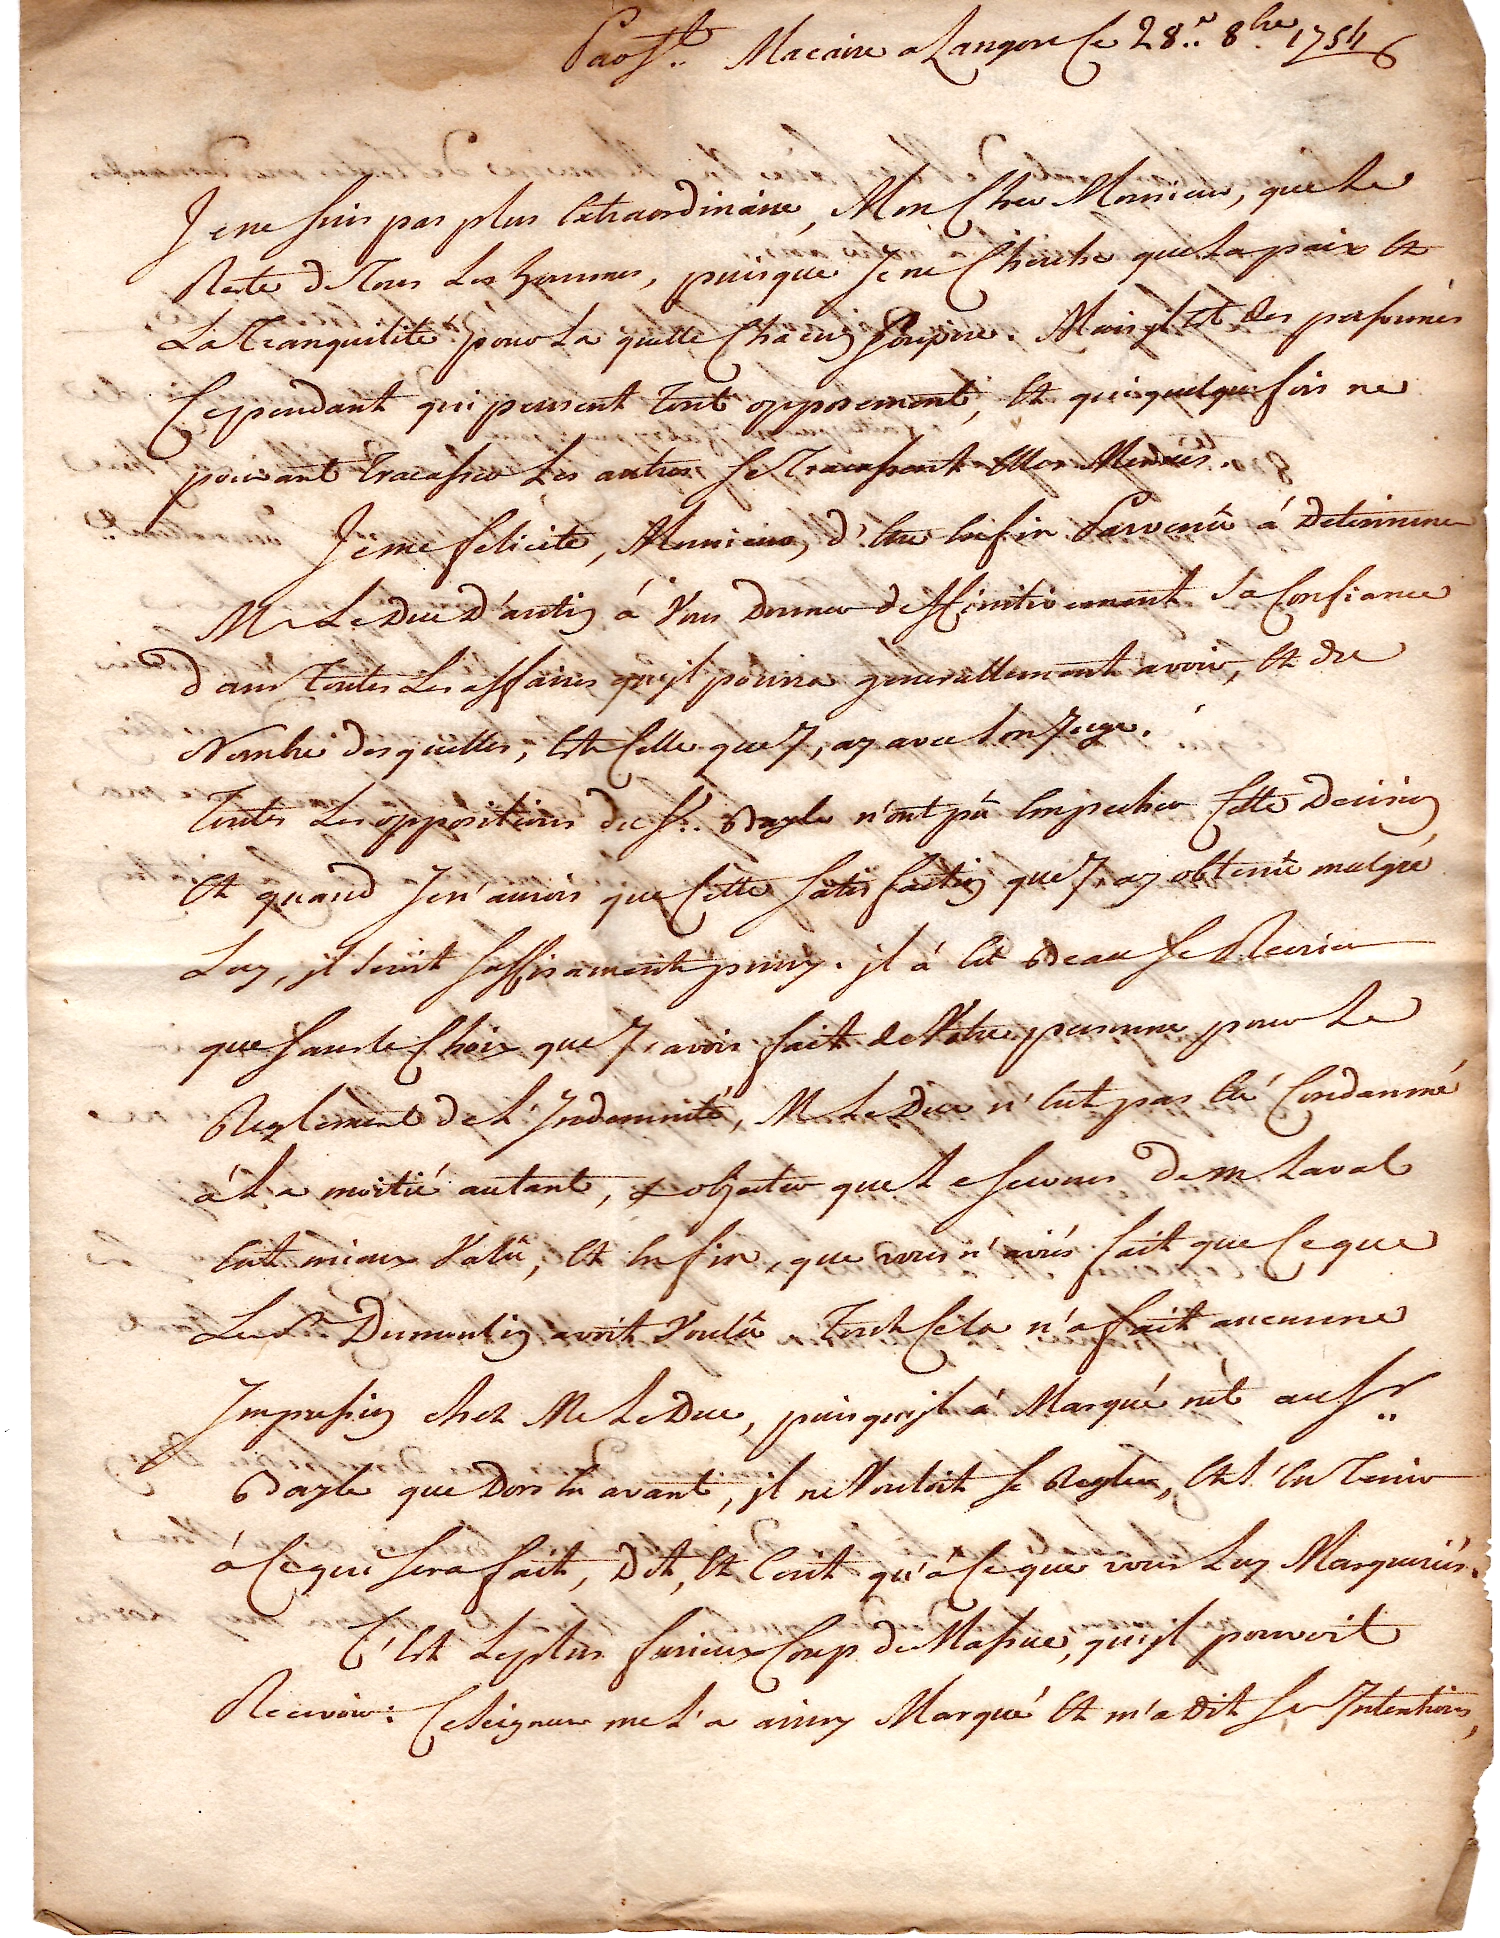 Par St. Macaire a Langon Ce 28.e 8bre 1754
Je ne suis pas plus Extraordinaire, Mon Cher Monsieur, que Le
Reste de Tous Les hommes, puisque Je ne Cherche que La paix Et
La Tranquilité pour La quelle Chacun Soupire. Mais jl Est des personnes
Cependant qui pensent tout opposement, Et qui quelque fois ne
pouvant Tracasser Les autres se Tracassent Elles Memes.
Je me felicite, Monsieur, d'Etre Enfin Parvenû á Determiner
Mr Le Duc D'antin á Vous Donner deffinitivement Sa Confiance
dans toutes Les affaires qu'jl pourra generallement avoir, Et du
Nombre desquelles, Est Celle que J'ay avec son Juge.
Toutes Les oppositions du Sr. Bayle n'ont pû Empecher Cette Decision
Et quand Je n'aurois que Cette Satisfaction que J'ay obtenüe malgré
Luy, jl Seroit Suffisament puny. jl á Eté Beau Se Recrier
que Sans le Choix que J'avois fait de Votre personne pour Le
Reglement de L'Indemnité, Mr Le Duc n'Eut pas Eté Condamné
á La moitié autant, objecter que Le Secours de Mr Laval
Eut mieux Valû, Et Enfin, que vous n'aviés fait que Ce que
Le Sr Dumoulin avoit Voulû Tout Cela n'a fait aucune
Impression chez Mr Le Duc, puisqu'jl á Marqué net au Sr.
Bayle que Dors En avant, jl ne Vouloit se Regler, Et s'En Tenir
á Ce qui sera fait, Dit, Et Ecrit qu'á Ce que vous Luy Marqueriés.
C'Est Le plus furieux Coup de Massue, qu'jl pouvoit
Recevoir: Ce Seigneur me L'a ainsy Marqué Et m'a Dit Ses Intentions,